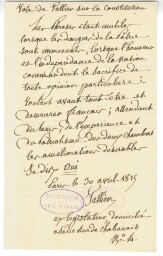 Vote de Sallier sur la Constitution
Les phrases étant inutiles
lorsque les dangers de la patrie
sont imminents, lorsque l'honneur
et l'indépendance de la Nation
commandent le sacrifice de
toute opinion particulière :
Voulant avant tout être et
demeurer français ; attendant
du tems, de l'expérience et
du patriotisme des deux chambres
les améliorations désirables
Je dis, Oui
Paris le 30 avril 1815
Sallier
ex législateur, domicilié
rue de chabanois
N° 4.